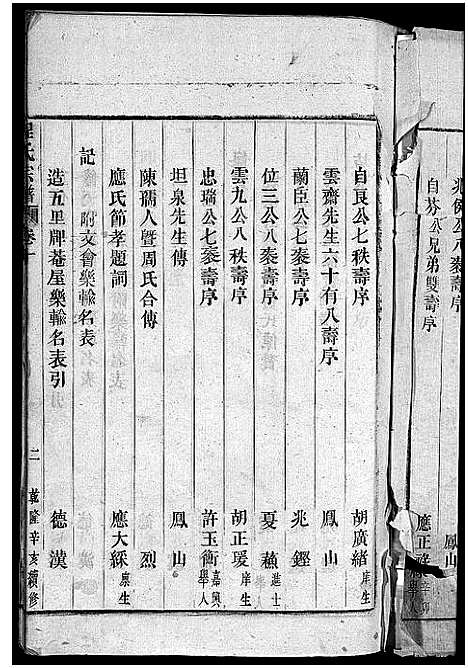 兆保公八袠壽序 鳳山
自芬公兄弟雙壽序 應正
自良公七秩壽序 胡廣緒 庠生
雲齋先生六十有八壽序 鳳山
蘭臣公七袠壽序 兆鏗
位三公八袠壽序 夏 進士
雲九公八秩壽序 胡正瑗 庠生
忠瑞公七袠壽序 許玉衡 嘉興舉人
坦泉先生傳 鳳山
陳孺人暨周氏合傳 烈
應氏節孝題詞 應大綵 廩生
記 附文會樂輸名表
造五里牌菴屋樂輸名表引 德漢
氏宗譜 卷一 二 乾隆辛亥續修